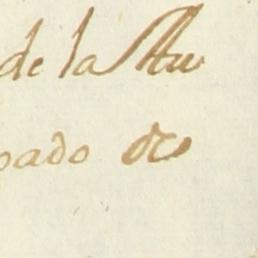 de la Au
pado &c